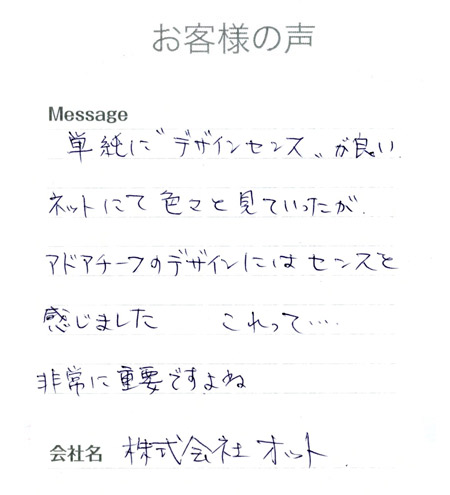 お客様の声
Message
単純に〝デザインセンス〟が良い
ネットにて色々と見ていったが
アドアチーフのデザインにはセンスを
感じました これって…
非常に重要ですよね
会社名 株式会社オット